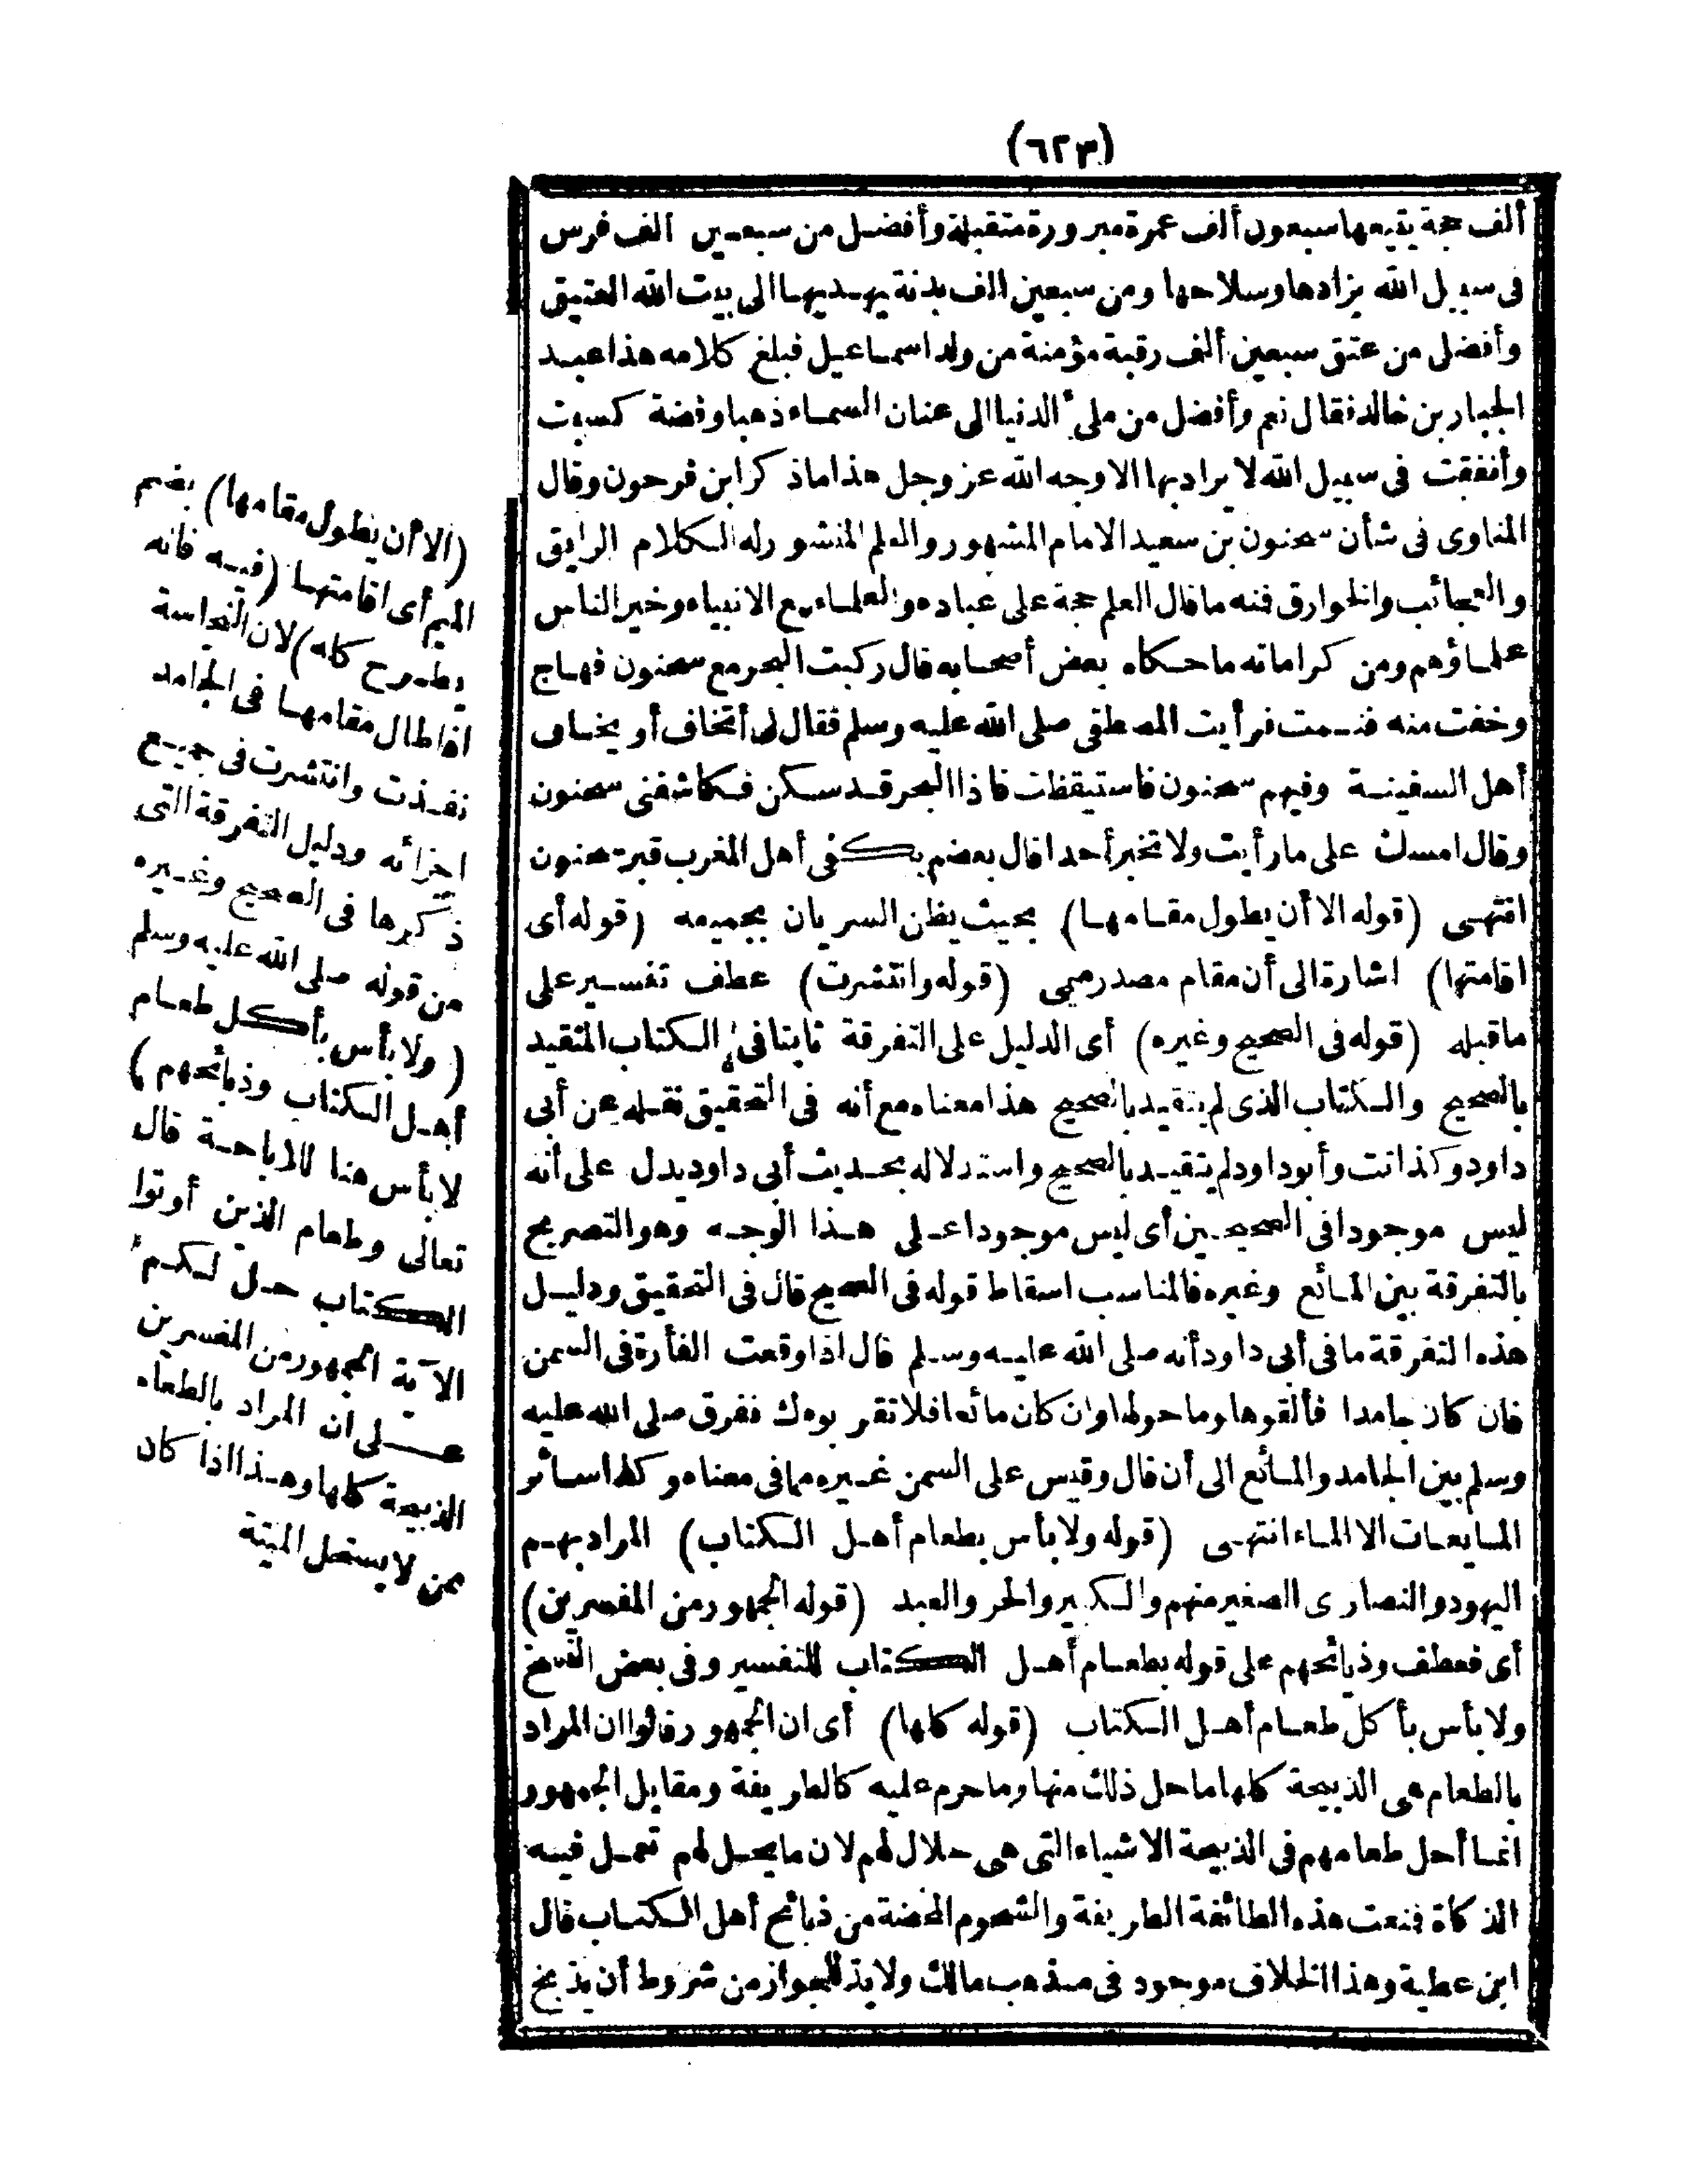 (٦٢٣)
ألف حجة يتبعها سبعون ألف عمرة مبرورة متقبلة وأفضل من سبعين الف فرس
فى سبيل الله بزادها وسلاحها ومن سبعين الف بدنة يهديها الى بيت الله العتيق
وأفضل من عتق سبعين ألف رقبة مؤمنة من ولد اسماعيل فبلغ كلامه هذا عبد
الجبار بن خالد فقال نعم وأفضل من ملئ الدنيا الى عنان السماء ذهبا وفضة كسبت
وأنفقت فى سبيل الله لا يراد بها الا وجه الله عز وجل هذا ماذكر ابن فرحون وقال
المناوى فى شأن سحنون بن سعيد الامام المشهور والعلم المنشور له الكلام الرايق
والعجائب والخوارق فنه ما قال العلم حجة على عباده والعلماء مع الانبياء وخير الناس
علماؤهم ومن كراماته ما حكاه بعض أصحابه قال ركبت البحر مع سحنون فهاج
وخفت منه فنمت فرأيت المصطفى صلى الله عليه وسلم فقال لى أتخاف أو يخاف
أهل السفينة وفيهم سحنون فاستيقظت فاذا البحر قد سكن فكاشفنى سحنون
وقال امسك على ما رأيت ولا تخبر أحدا قال بعضهم يكفى أهل المغرب قبر سحنون
انتهى (قوله الا أن يطول مقامها) بحيث يظن السريان بجميعه (قوله أى
اقامتها) اشارة الى أن مقام مصدر ميمى (قوله وانتشرت) عطف تفسير على
ما قبله (قوله فى الصحيح وغيره) أى الدليل على التفرقة ثابتا فى الكتاب المتقيد
بالصحيح والكتاب الذى لم يتقيد بالصحيح هذا معناه مع أنه فى التحقيق نقله عن أبى
داود وكذا تت وأبو داود لم يتقيد بالصحيح واستدلاله بحديث أبى داود يدل على أنه
ليس موجودا فى الصحيحين أى ليس موجودا على هذا الوجه وهو التصريح
بالتفرقة بين المائع وغيره فالمناسب اسقاط قوله فى الصحيح قال فى التحقيق ودليل
هذه التفرقة ما فى أبى داود أنه صلى الله عليه وسلم قال اذا وقعت الفأرة فى السمن
فان كان جامدا فألقوها وما حولها وان كان مائعا فلا تقربوه ك ففرق صلى الله عليه
وسلم بين الجامد والمائع الى أن قال وقيس على السمن غيره مما فى معناه وكذا سائر
المايعات الا الماء انتهى (قوله ولا بأس بطعام أهل الكتاب) المراد بهم
اليهود والنصارى الصغير منهم والكبير والحر والعبد (قوله الجمهور من المفسرين)
أى فعطف وذبائحهم على قوله بطعام أهل الكتاب للتفسير وفى بعض النسخ
ولا بأس بأكل طعام أهل الكتاب (قوله كلها) أى ان الجمهور قالوا ان المراد
بالطعام هى الذبيحة كلها ما حل ذلك منها وما حرم عليه كالطريفة ومقابل الجمهور
انما أحل طعامهم فى الذبيحة الاشياء التى هى حلال لهم لان ما يحل لهم تعمل فيه
الذكاة فنعت هذه الطائفة الطريفة والشحوم المحضة من ذبائح أهل الكتاب قال
ابن عطية وهذا الخلاف موجود فى مذهب مالك ولا بد للجواز من شروط أن يذبح
(الا أن يطول مقامها) بضم
الميم أى اقامتها (فيه فانه
يطرح كله) لان النجاسة
اذا طال مقامها فى الجامد
نفذت وانتشرت فى جميع
اجزائه ودليل التفرقة التى
ذكرها فى الصحيح وغيره
من قوله صلى الله عليه وسلم
(ولا بأس بأكل طعام
أهل الكتاب وذبائحهم)
لا بأس هنا للاباحة قال
تعالى وطعام الذين أوتوا
الكتاب حل لكم
الآية الجمهور من المفسرين
على ان المراد بالطعام
الذبيحة كلها وهذا اذا كان
ممن لا يستحل الميتة